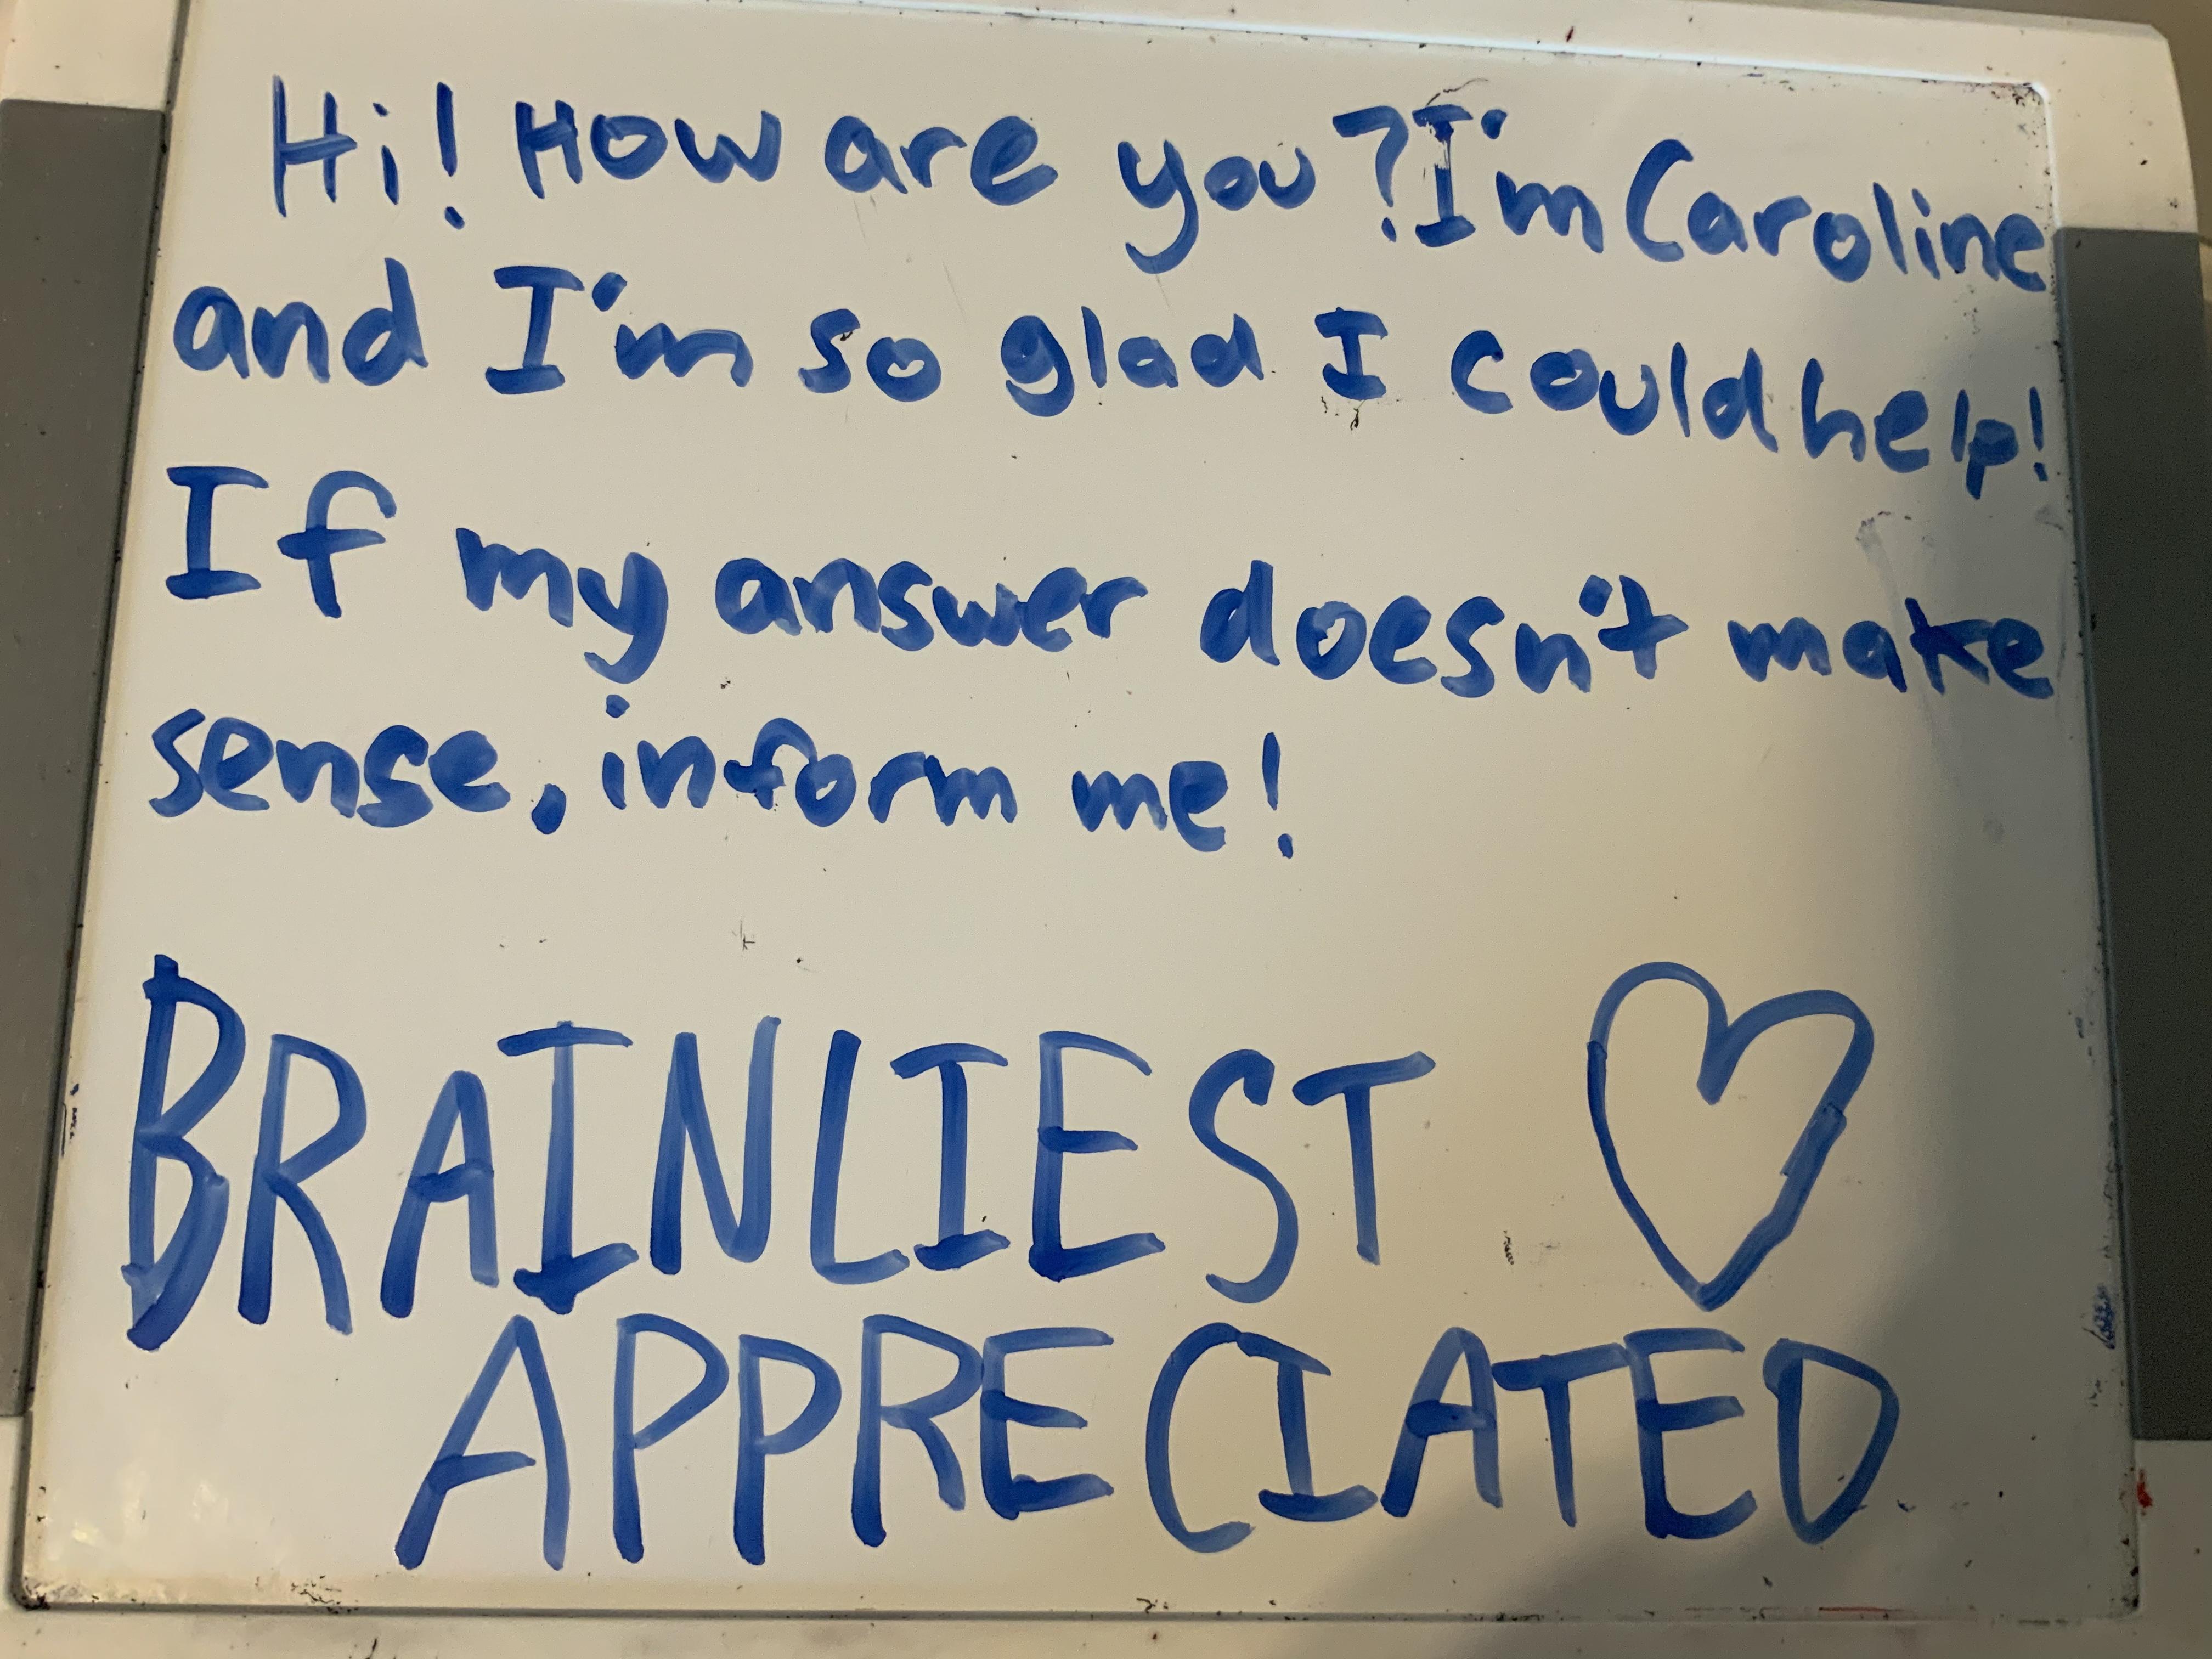 Hi! How are you? I'm Caroline
and I'm so glad I could help!
If my answer doesn't make
sense, inform me!
BRAINLIEST ♡
APPRECIATED